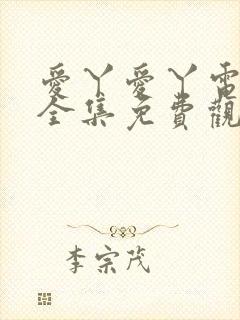 愛丫愛丫電
全集免費觀
李宗茂